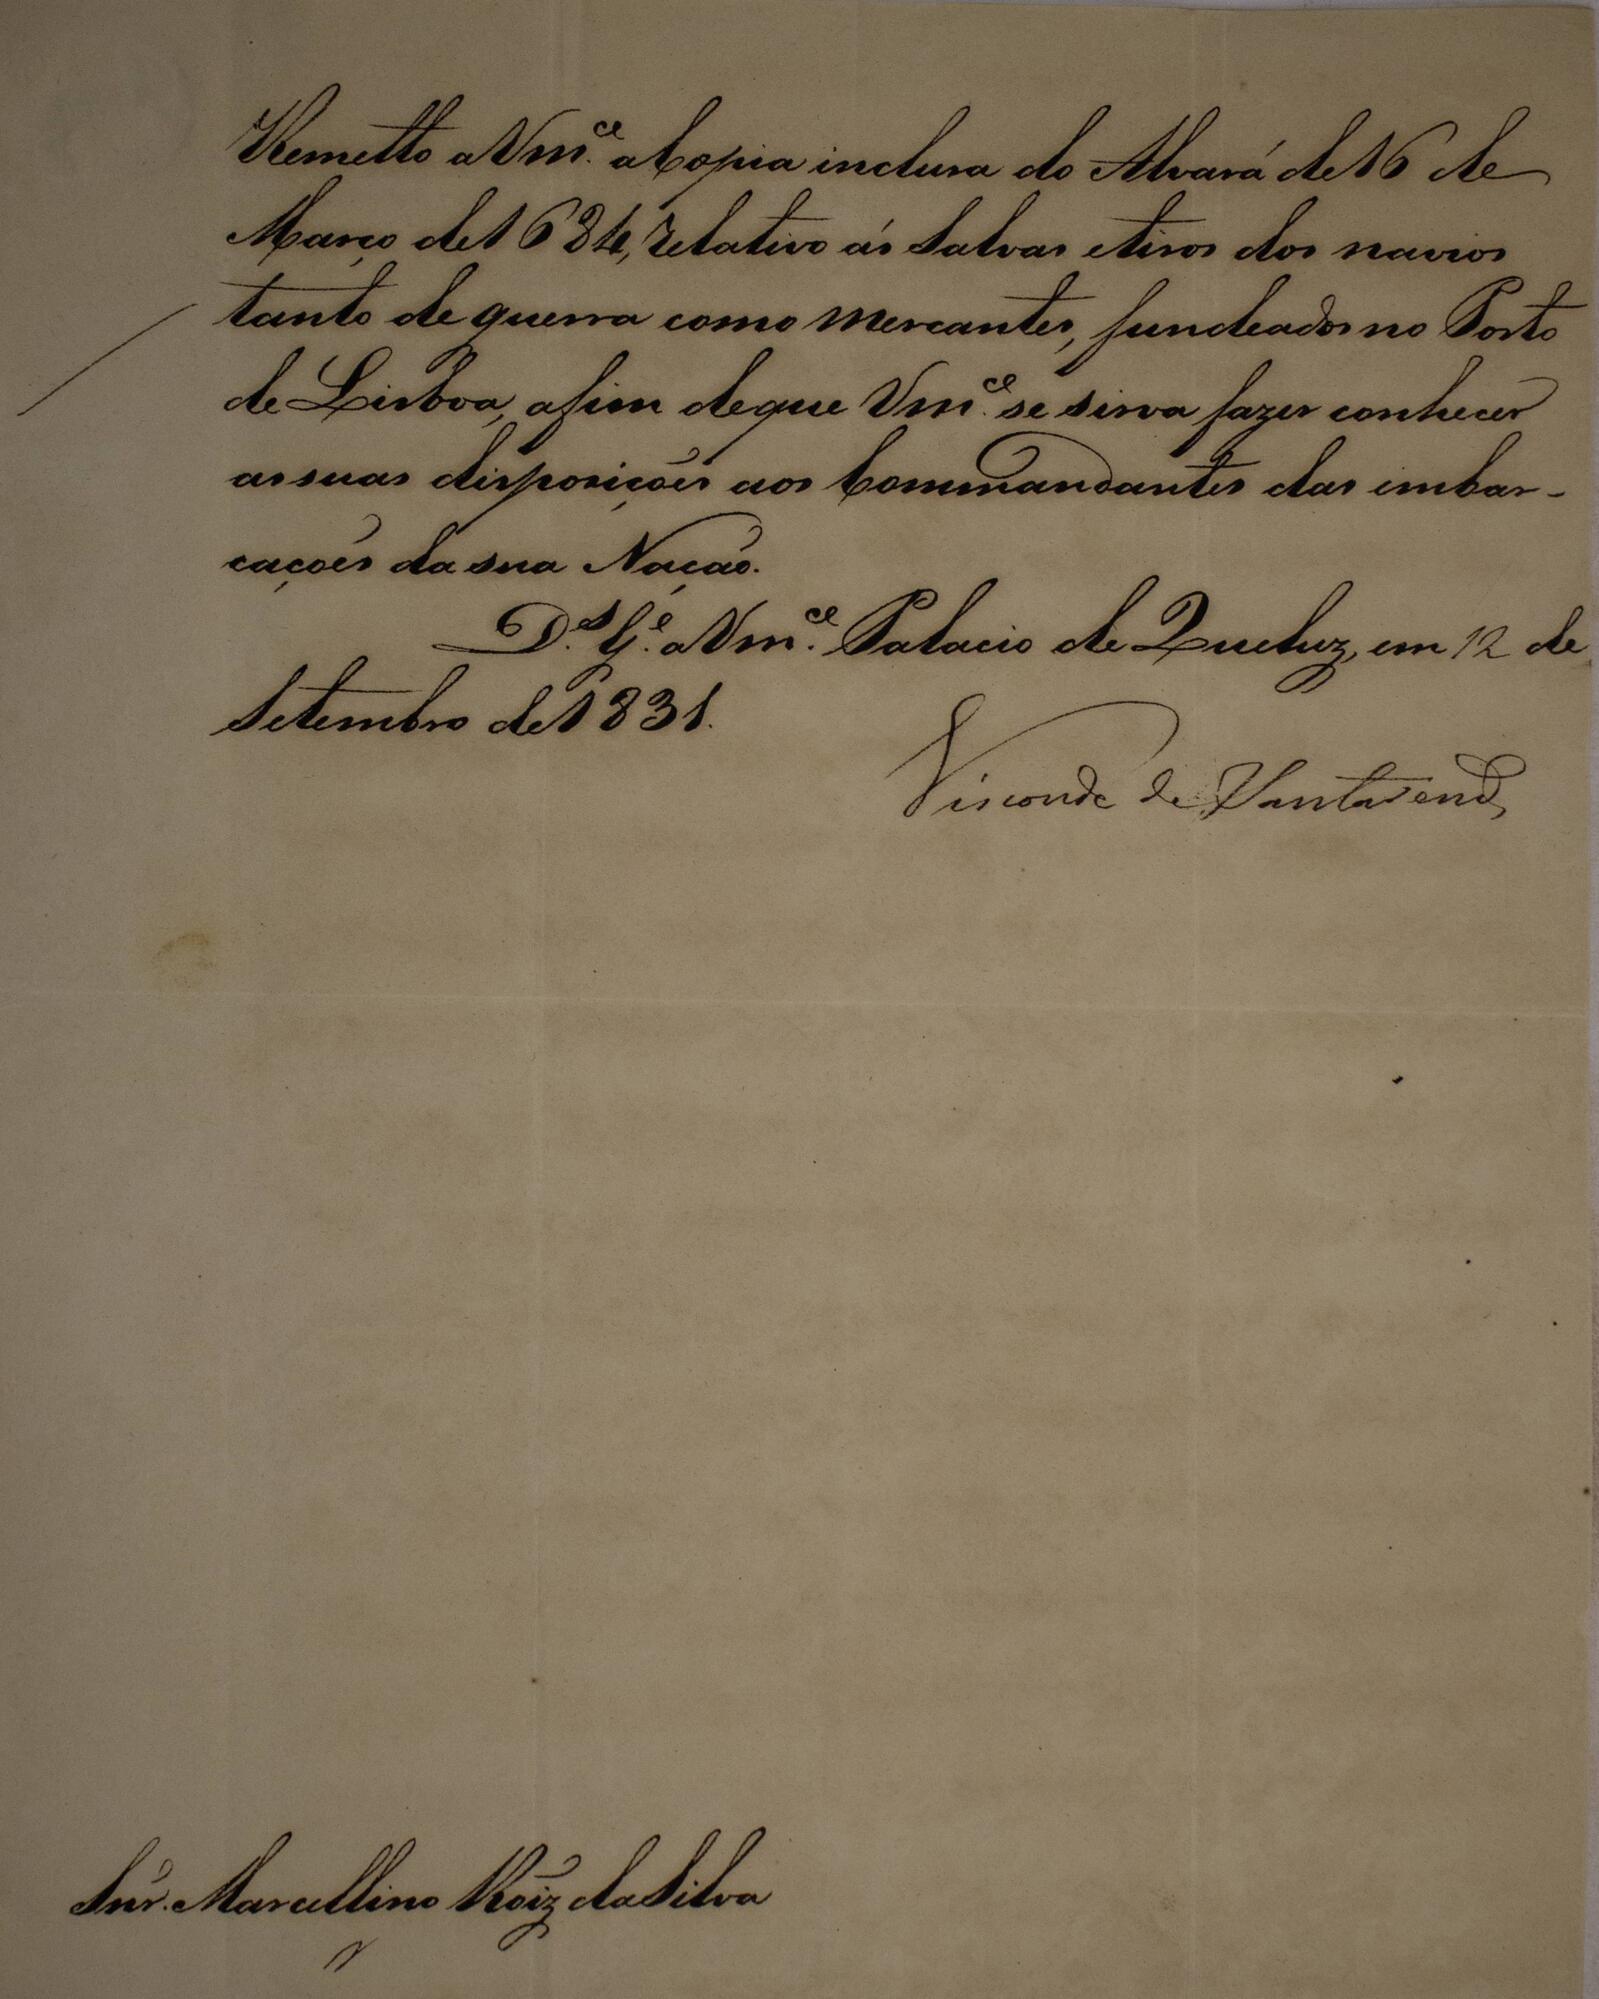 Remetto a Vm.ce a Copia inclusa do Alvará de 16 de
Março de 1684, relativo ás Salvas e tiros dos navios
tanto de guerra como mercantes, fundeados no Porto
de Lisboa, afim de que Vm.ce se sirva fazer conhecer
as suas disposições aos Commandantes das embar-
cações da sua Nação.
D.s G.e a Vm.ce Palacio de Queluz, em 12 de
Setembro de 1831.
Visconde de Santarem
Snr. Marcellino Roiz da Silva